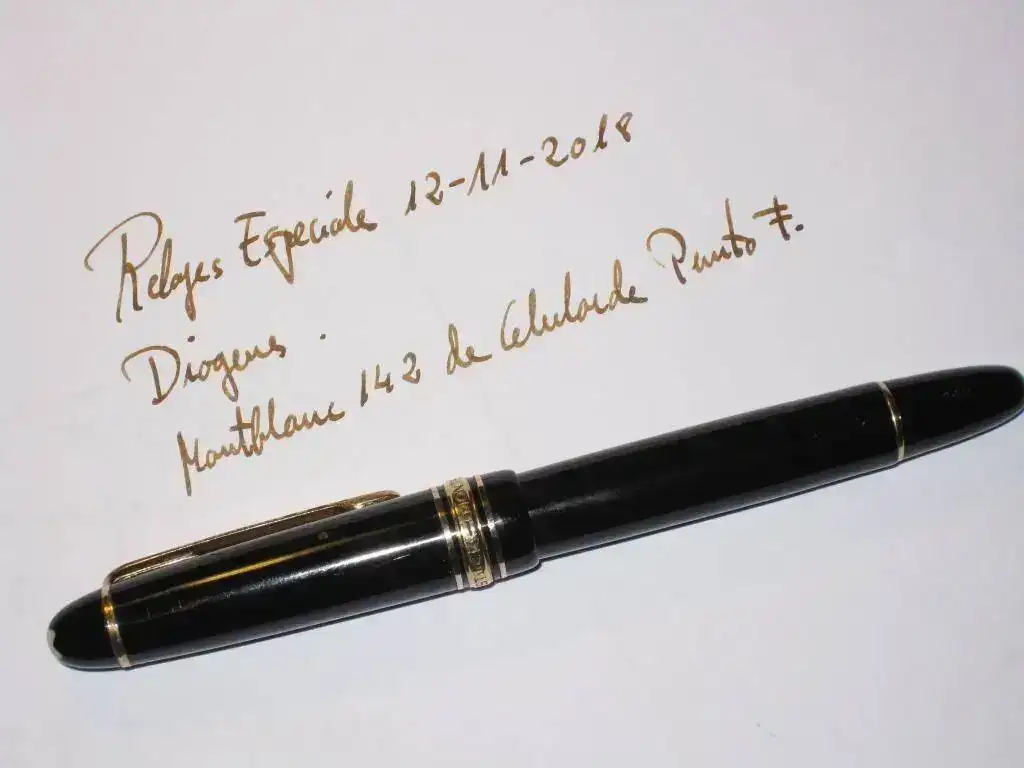 Relojes Especiales 12-11-2018
Diogenes.
Montblanc 142 de Celuloide Punto F.